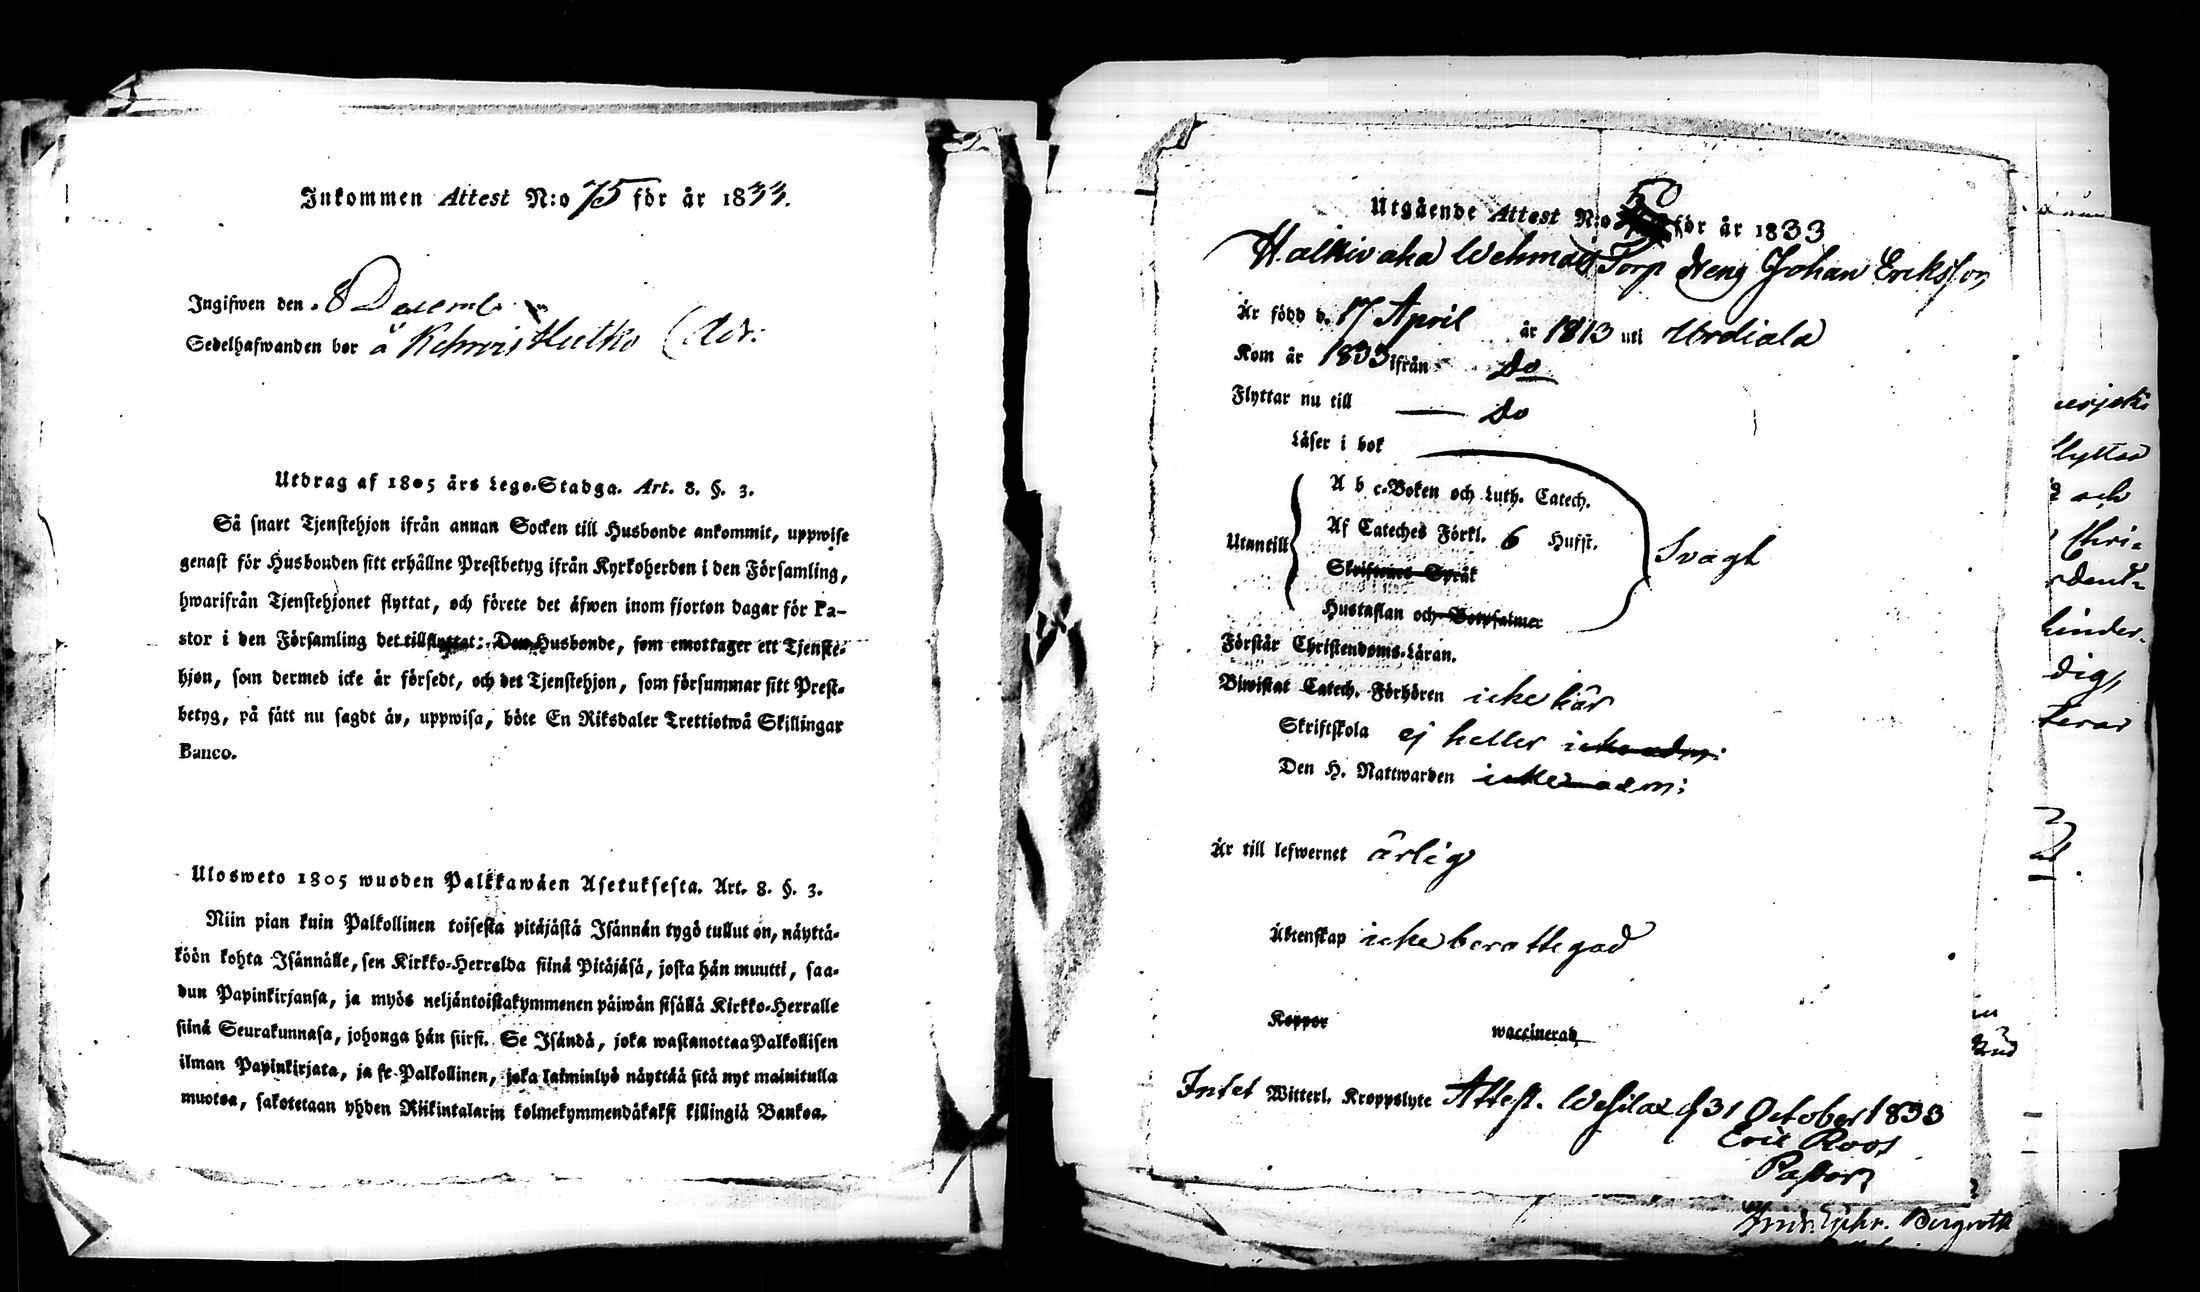 Inkommen Attest N:o 75 för år 1833.
Ingifwen den 8 Decemb
Sedelhafwanden bor å
Utdrag af 1805 års Lego-Stadga. Art. 8. §. 3.
Så snart Tjenstehjon ifrån annan Socken till Husbonde ankommit, uppwise
genast för Husbonden sitt erhållne Prestbetyg ifrån Kyrkoherden i den Församling,
hwarifrån Tjenstehjonet flyttat, och förete det äfwen inom fjorton dagar för Pa-
stor i den Församling det tillflyttat: Den Husbonde, som emottager ett Tjenste-
hjon, som dermed icke är försedt, och det Tjenstehjon, som försummar sitt Prest-
betyg, på sätt nu sagdt är, uppwisa, böte En Riksdaler Trettiotwå Skillingar
Banco.
Ulosweto 1805 wuoden Palkkawäen Asetuksesta. Art. 8. §. 3.
Niin pian kuin Palkollinen toisesta pitäjästä Isännän tygö tullut on, näyttä-
köön kohta Isännälle, sen Kirkko-Herralda siinä Pitäjäsä, josta hän muutti, saa-
dun Papinkirjansa, ja myös neljäntoistakymmenen päiwän sisällä Kirkko-Herralle
siinä Seurakunnasa, johonga hän siirsi. Se Isändä, joka wastanottaa Palkollisen
ilman Papinkirjata, ja se Palkollinen, joka laiminlyö näyttää sitä nyt mainitulla
muotoa, sakotetaan yhden Riikintalarin kolmekymmendäkaksi killingiä Bankoa.
Utgående Attest N:o 50 för år 1833
Halkivaha Wehmas Torp dreng Johan Eriksson
Är född d. 17 April år 1813 uti Urdiala
Kom år 1833 ifrån Do
Flyttar nu till Do
Läser i bok
A b c-Boken och Luth. Catech.
Af Cateches Förkl. 6 Hufst.
Utantill Svagt
Skriftenes Språk
Hustaflan och Botpsalmer
Förstår Christendoms-Läran.
Biwistat Catech. Förhören icke här
Skriftskola ej heller icke adm:
Den H. Nattwarden icke adm:
Är till lefwernet ärlig
Äktenskap icke berättigad
Koppor waccinerad,
Intet Witterl. Kroppslyte Attest. Wesilax d 31 October 1833
Eric Roos
Pastor
Bergroth